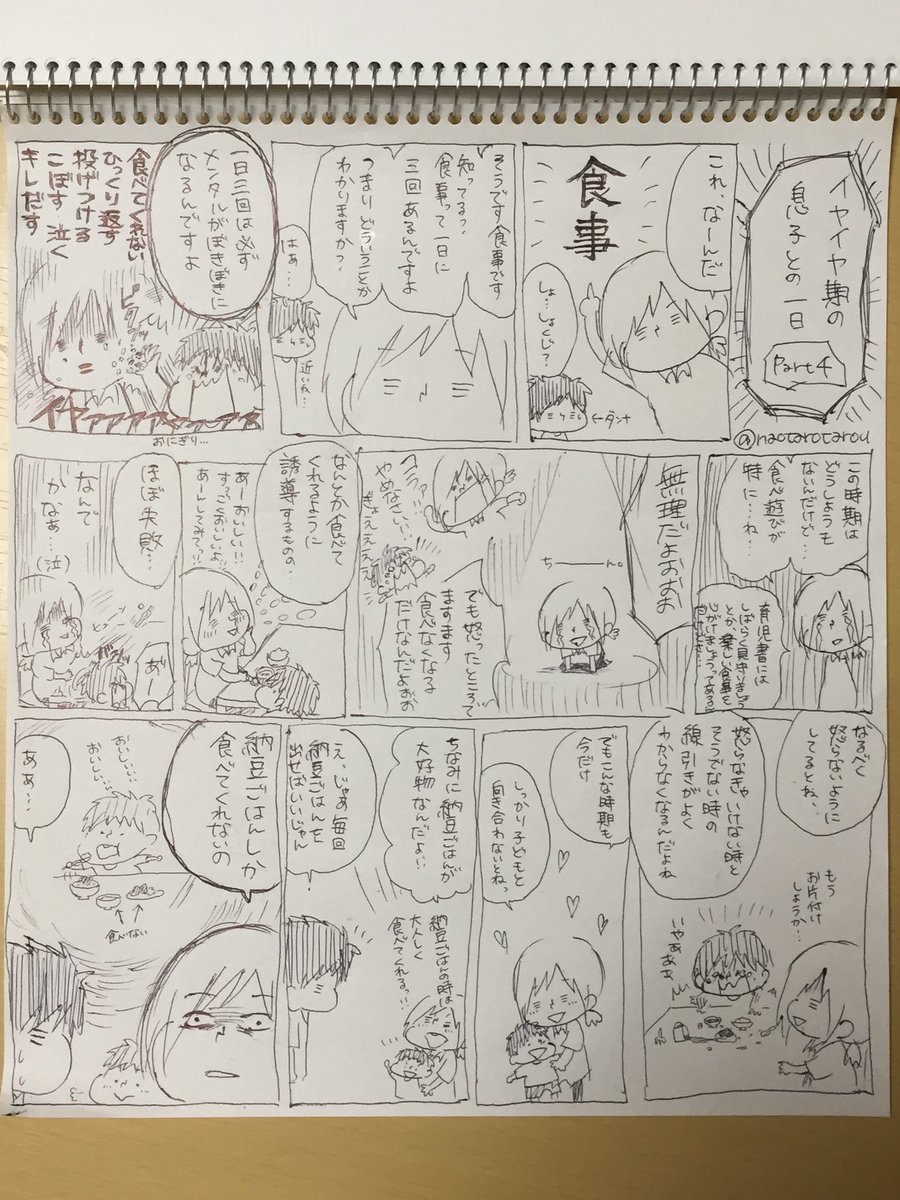 イヤイヤ期の
息子との一日
Part4
@naotarotarou
これ、なーんだ
食事
しょ…しょくじ?
←ダンナ
そうです食事です
知ってる?
食事って一日に
三回あるんですよ
つまりどういうことか
わかりますか?
はぁ…
近いね…
一日三回は必ず
メンタルがぼきぼきに
なるんですよ
食べてくれない
ひっくり返す
投げつける
こぼす 泣く
キレだす
イヤァァァァァァァァ
おにぎり…
この時期は
どうしようも
ないんだけど…
食べ遊びが
特に…ね…
育児書には
しばらく見守りましょう
とか、楽しい食事を
無理だよおおお
ちーーん。
でも怒ったところで
ますます
食べなくなる
だけなんだよおお
やめなさい…
ぎゃええええ
なんとか食べて
くれるように
誘導するもの…
あーおいしい…
すっごくおいしいよ…
あーんしてみてっ…
ほぼ失敗…
なんで
かなぁ…(泣)
あ゛ー
なるべく
怒らないように
してるとね…
怒らなきゃいけない時と
そうでない時の
線引きがよく
わからなくなるんだよね
もう
お片付け
しようか…
いやああぁ
でもこんな時期も
今だけ
しっかり子どもと
向き合わないとねっ
ちなみに納豆ごはんが
大好物なんだよ…
納豆ごはんの時は
大人しく
食べてくれるっ…
え、じゃあ毎回
納豆ごはんを
出せばいいじゃん
納豆ごはんしか
食べてくれないの
おいしい…
おいしい…
↑ ↑
食べない
ああ…